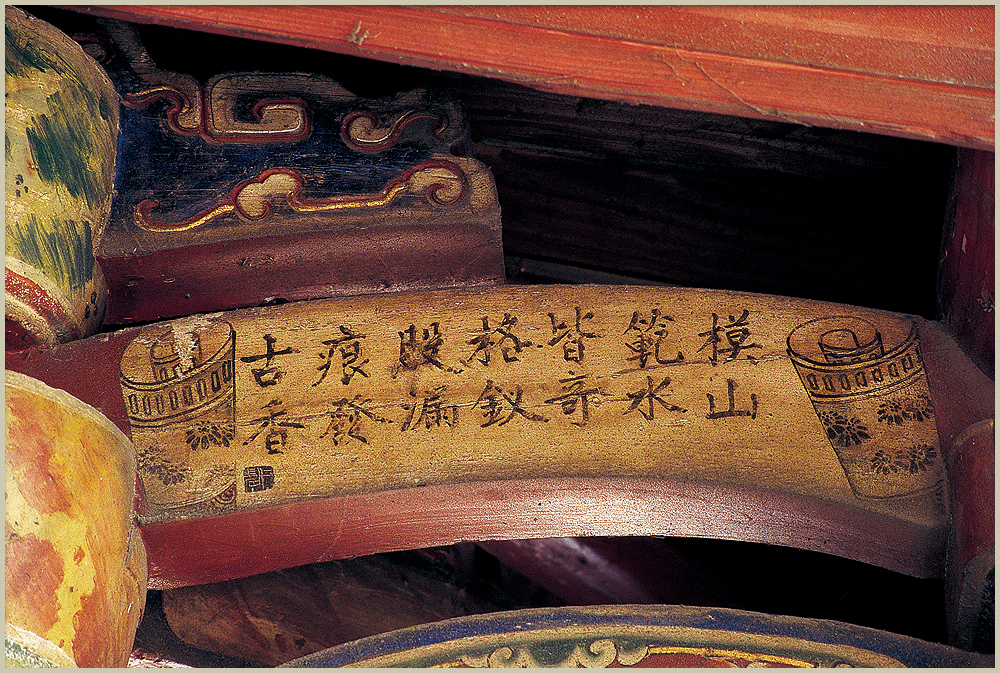 模山
範水
皆奇
格釵
股漏
痕發
古香